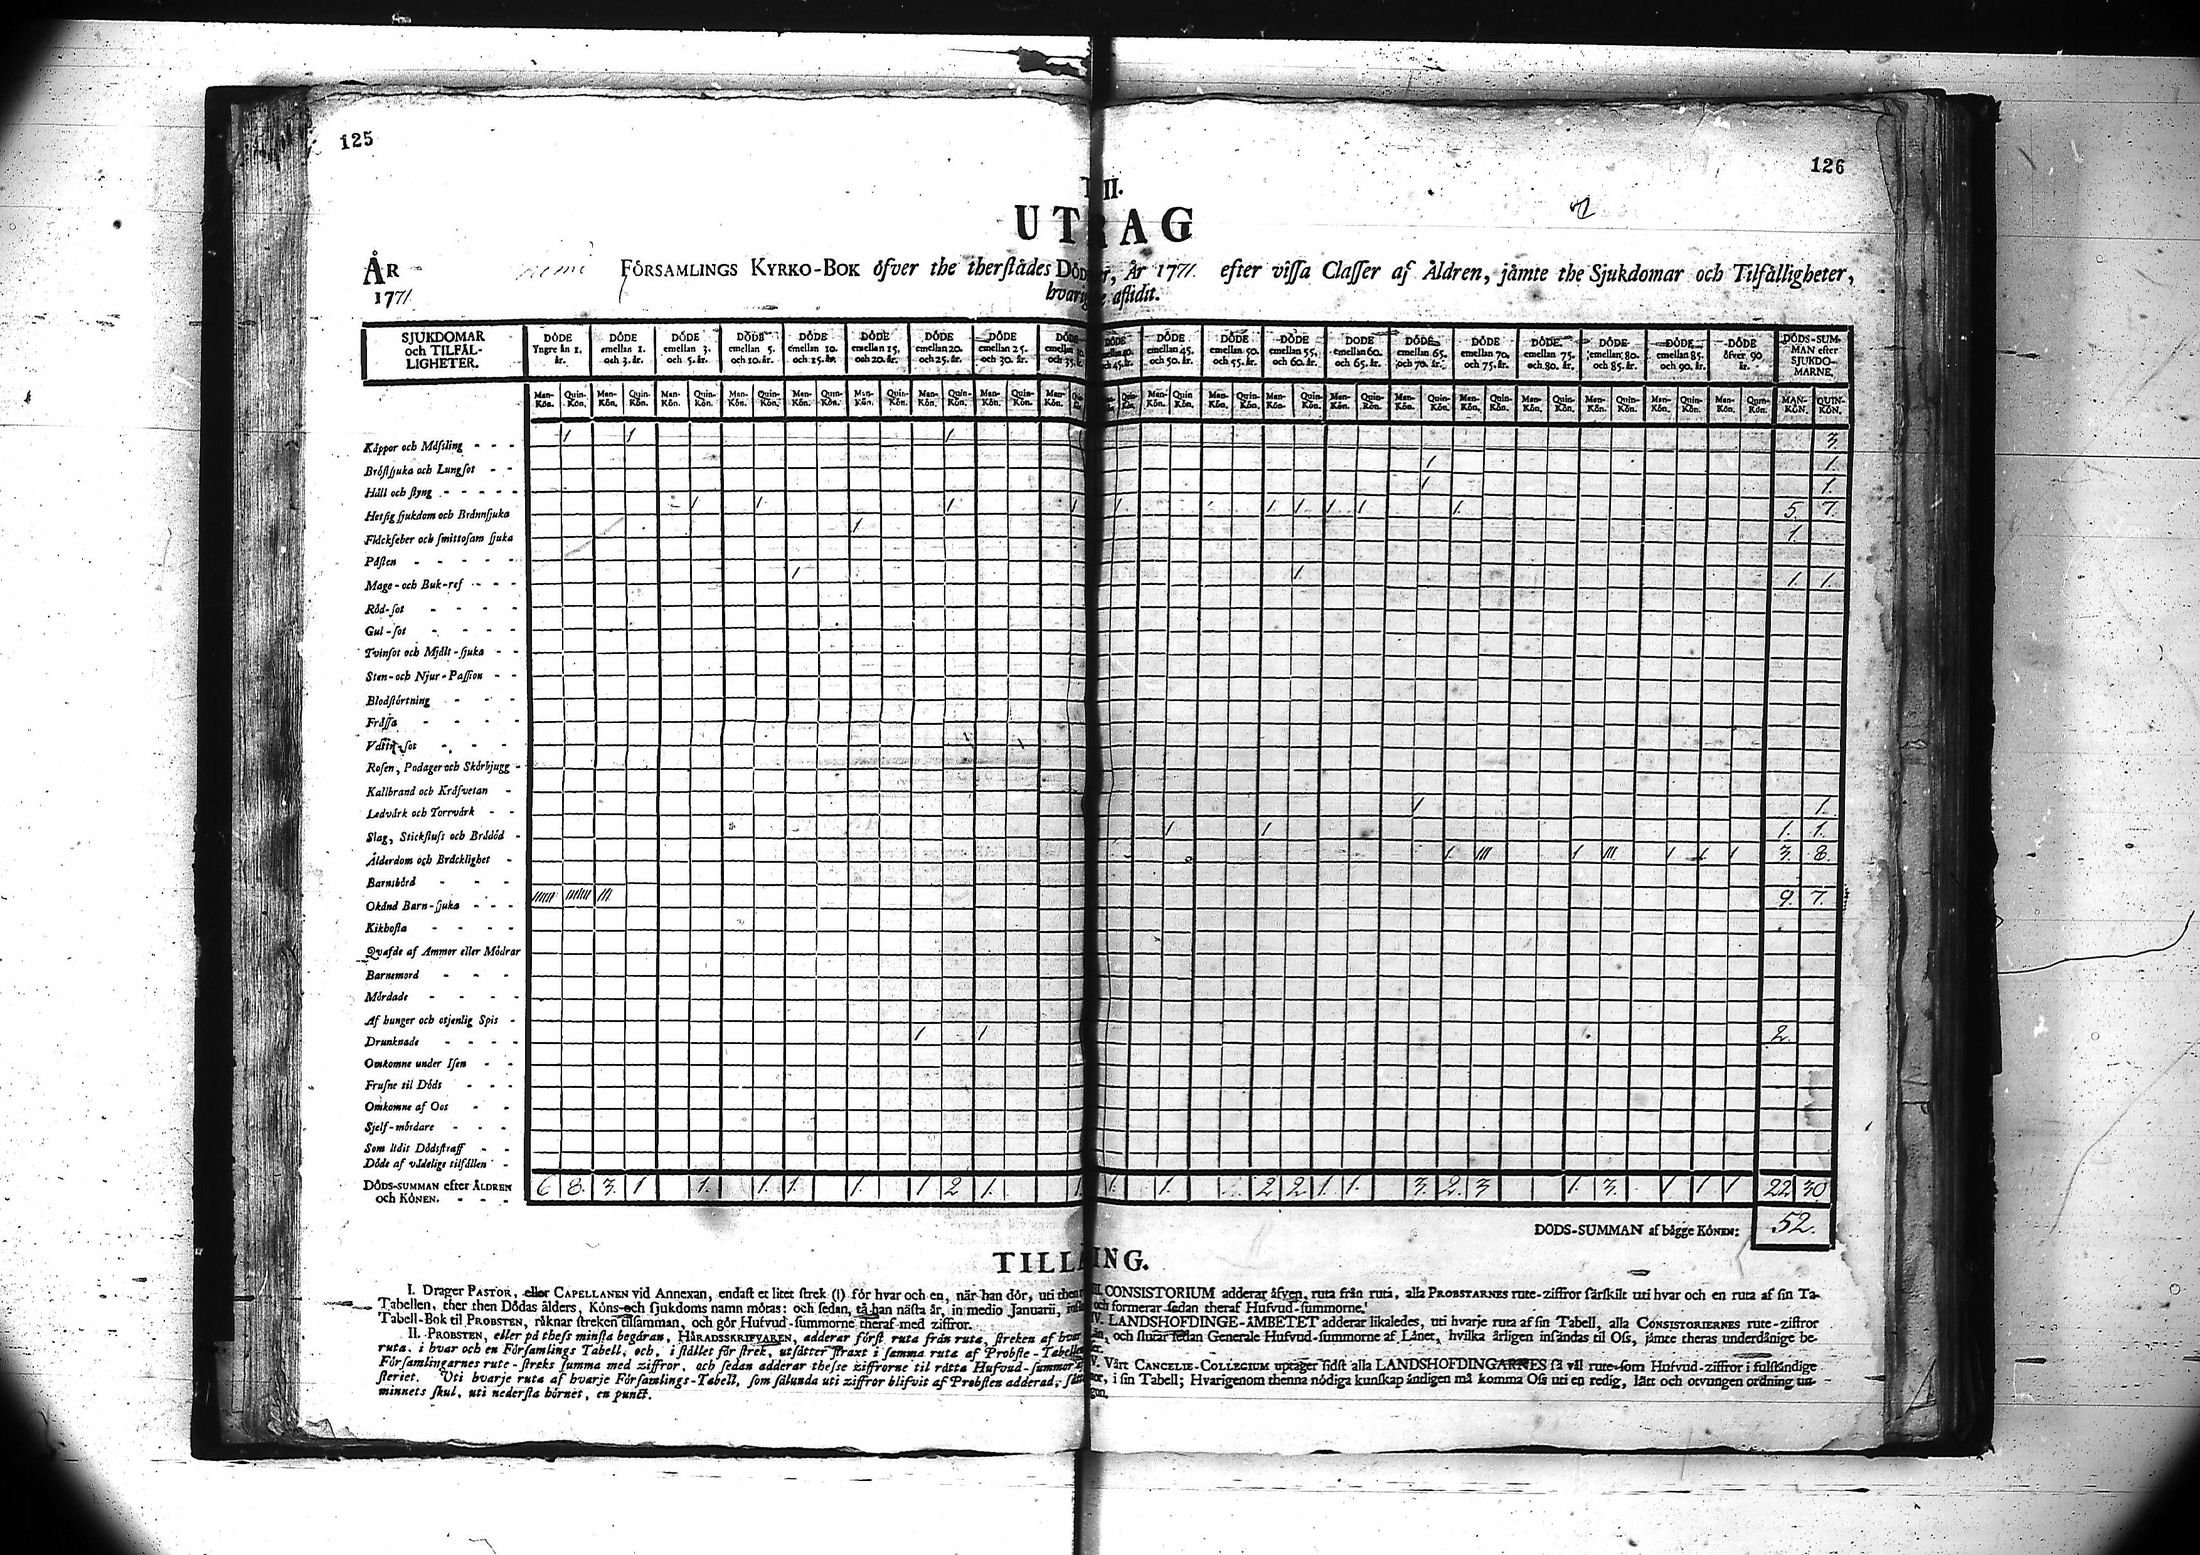 125
126
II.
UTRAG
ÅR
1771.
FÖRSAMLINGS KYRKO-BOK öfver the therstädes År 1771. efter vissa Classer af Åldren, jämte the Sjukdomar och Tilfälligheter,
aflidit.
SJUKDOMAR och TILFÄLLIGHETER.
DÖDE Yngre än 1. år.
DÖDE emellan 1. och 3. år.
DÖDE emellan 3. och 5. år.
DÖDE emellan 5. och 10. år.
DÖDE emellan 10. och 15. år.
DÖDE emellan 15. och 20. år.
DÖDE emellan 20. och 25. år.
DÖDE emellan 25. och 30. år.
DÖDE emellan och 35. år
och 45. år.
DÖDE emellan 45. och 50. år.
DÖDE emellan 50. och 55. år.
DÖDE emellan 55. och 60. år.
DÖDE emellan 60. och 65. år.
DÖDE emellan 65. och 70. år.
DÖDE emellan 70. och 75. år.
DÖDE emellan 75. och 80. år.
DÖDE emellan 80. och 85. år.
DÖDE emellan 85. och 90. år.
DÖDE öfver 90 år.
DÖDS-SUMMAN efter SJUKDOMARNE.
Man-Kön. Quin-Kön. Man-Kön. Quin-Kön. Man-Kön. Quin-Kön. Man-Kön. Quin-Kön. Man-Kön. Quin-Kön. Man-Kön. Quin-Kön. Man-Kön. Quin-Kön. Man-Kön. Quin-Kön. Man-Kön. Man-Kön. Quin-Kön. Man-Kön. Quin-Kön. Man-Kön. Quin-Kön. Man-Kön. Quin-Kön. Man-Kön. Quin-Kön. Man-Kön. Quin-Kön. Man-Kön. Quin-Kön. Man-Kön. Quin-Kön. Man-Kön. Quin-Kön. Man-Kön. Quin-Kön. MAN-KÖN. QUIN-KÖN.
Kåppor och Måsling - - - 1 1 1 3
Bröstsjuka och Lungsot - - 1 1.
Håll och styng - - - - - 1 1.
Hetsig sjukdom och Brännsjuka 1 1 1 1 1 1 1 1 1 1. 5 7.
Fläckfeber och smittosam sjuka 1 1.
Påsten - - - - -
Mage-och Buk-ref - - - 1 1. 1. 1.
Röd-sot - - - -
Gul-sot - - - -
Tvinsot och Mjält-sjuka - -
Sten-och Njur-Passion - -
Blodstörtning - - -
Fråssa - - - -
Vatu-sot - - - 1 1
Rosen, Podager och Skörbjugg -
Kallbrand och Kräfvetan -
Ledvärk och Torrvärk - - 1 1.
Slag, Stickfluss och Brådöd - 1 1 1. 1.
Ålderdom och Bräcklighet - 1. III 1 III 1 1 1 3. 8.
Barnsbörd - - -
Okänd Barn-sjuka - - - IIIIII IIIIIII III 9. 7.
Kikhosta - - - -
Qvafde af Ammor eller Mödrar
Barnemord - - -
Mördade - - - -
Af hunger och otjenlig Spis -
Drunknade - - - - 1 1 2.
Omkomne under Isen - -
Frusne til Döds - - -
Omkomne af Oos - -
Sjelf-mördare - - -
Som lidit Dödsstraff - -
Döde af vådelige tilfällen -
DÖDS-SUMMAN efter ÅLDREN
och KÖNEN. - - - 6 8. 3. 1 1. 1. 1. 1. 1 2 1. 1 1. 1. 2 2 1. 1. 3. 2. 3 1. 3. 1 1 1 22 30
DÖDS-SUMMAN af bägge KÖNEN: 52.
TILL ING.
I. Drager PASTOR, eller CAPELLANEN vid Annexan, endast et litet strek (I) för hvar och en, när han dör, uti
Tabellen, ther then Dödas ålders, Köns-och sjukdoms namn mötas: och sedan, tå han nästa år, in medio Januarii,
Tabell-Bok til PROBSTEN, räknar streken tilsamman, och gör Hufvud-summorne theraf med ziffror.
II. PROBSTEN, eller på thess minsta begäran, HÄRADSSKRIFVAREN, adderar först ruta från ruta, streken af
ruta, i hvar och en Församlings Tabell, och, i stället för strek, utsätter straxt i samma ruta af Probste-Tabellen
Församlingarnes rute-streks summa med ziffror, och sedan adderar thesse ziffrorne til rätta Hufvud-summor
steriet. Uti hvarje ruta af hvarje Församlings-Tabell, som sålunda uti ziffror blifvit af Probsten adderad,
minnets skul, uti nedersta hörnet, en punct.
III. CONSISTORIUM adderar äfven, ruta från ruta, alla PROBSTARNES rute-ziffror särskilt uti hvar och en ruta af sin Ta-
och formerar sedan theraf Hufvud-summorne.
IV. LANDSHOFDINGE-ÄMBETET adderar likaledes, uti hvarje ruta af sin Tabell, alla CONSISTORIERNES rute-ziffror
och slutar sedan Generale Hufvud-summorne af Länet, hvilka årligen insändas til Oss, jämte theras underdånige be-
V. Vårt CANCELIE-COLLEGIUM uptager sidst alla LANDSHOFDINGARNES så väl rute-som Hufvud-ziffror i fulständige
i sin Tabell; Hvarigenom thenna nödiga kunskap ändtligen må komma Oss uti en redig, lätt och otvungen ordning un-